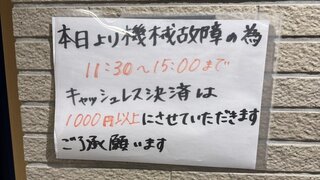 本日より機械故障の為
11:30～15:00まで
キャッシュレス決済は
1000円以上にさせていただきます
ご了承願います